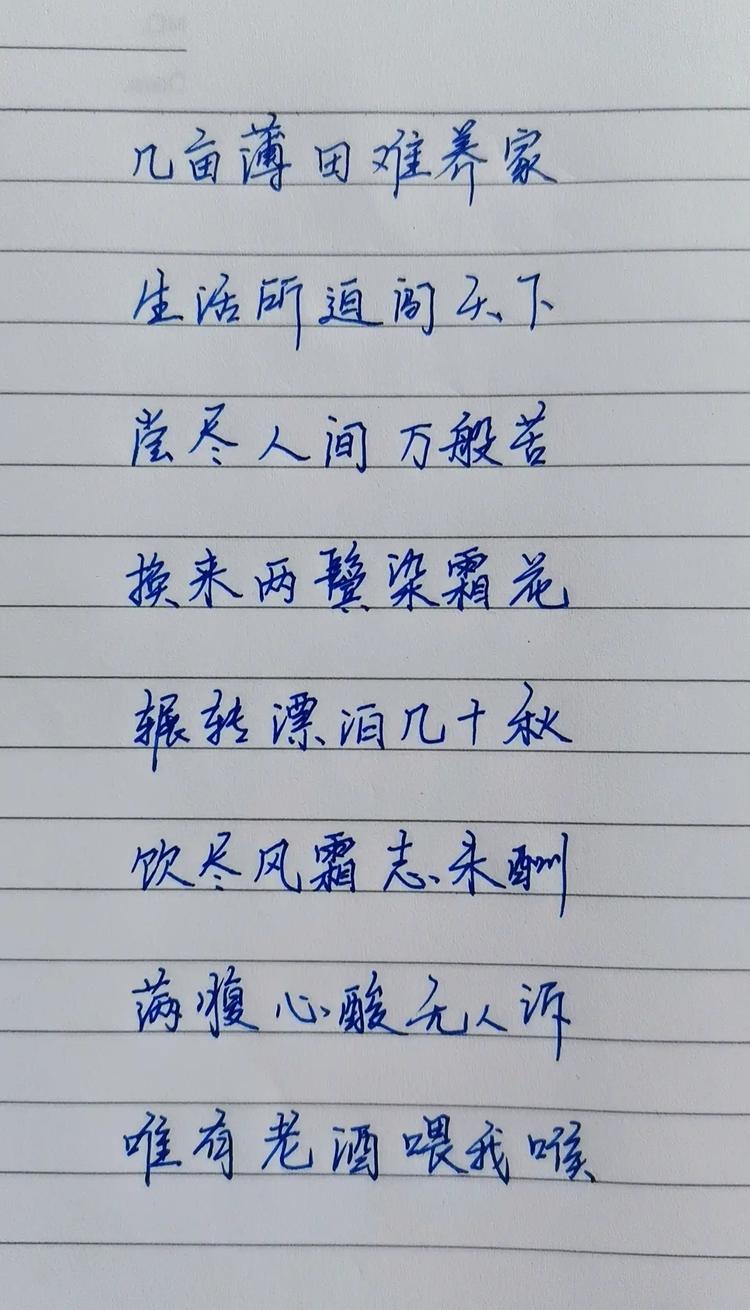 几亩薄田难养家
生活所迫闯天下
尝尽人间万般苦
换来两鬓染霜花
辗转漂泊几十秋
饮尽风霜志未酬
满腹心酸无人诉
唯有老酒喂我喉